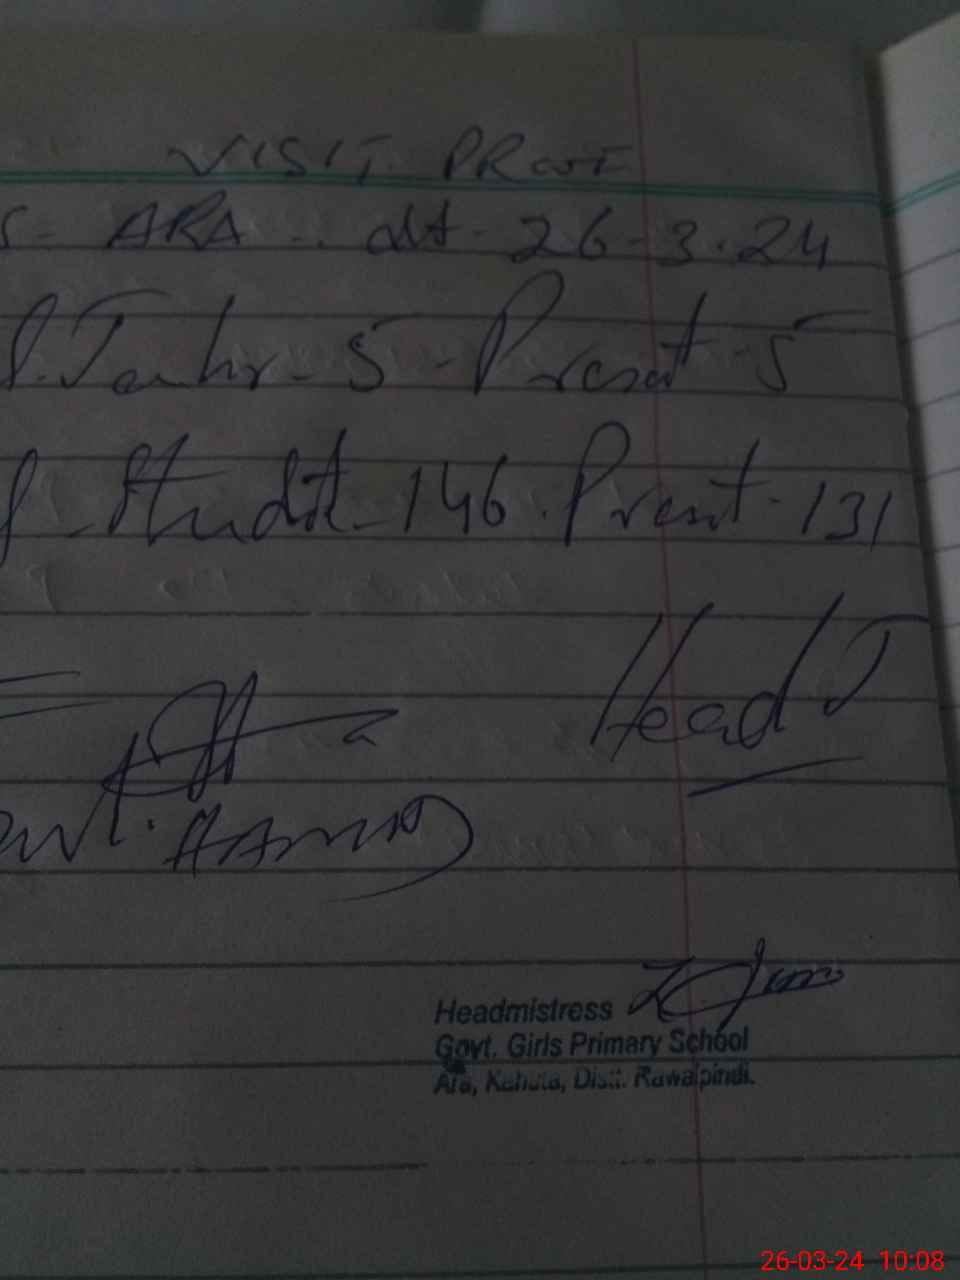 VISIT PROOF
S- ARA - dt- 26-3-24
f. Teachr - 5 - Present - 5
f - Studt - 146 . Present - 131
Head T
Headmistress
Govt. Girls Primary School
Ara, Kahuta, Distt. Rawalpindi.
26-03-24 10:08